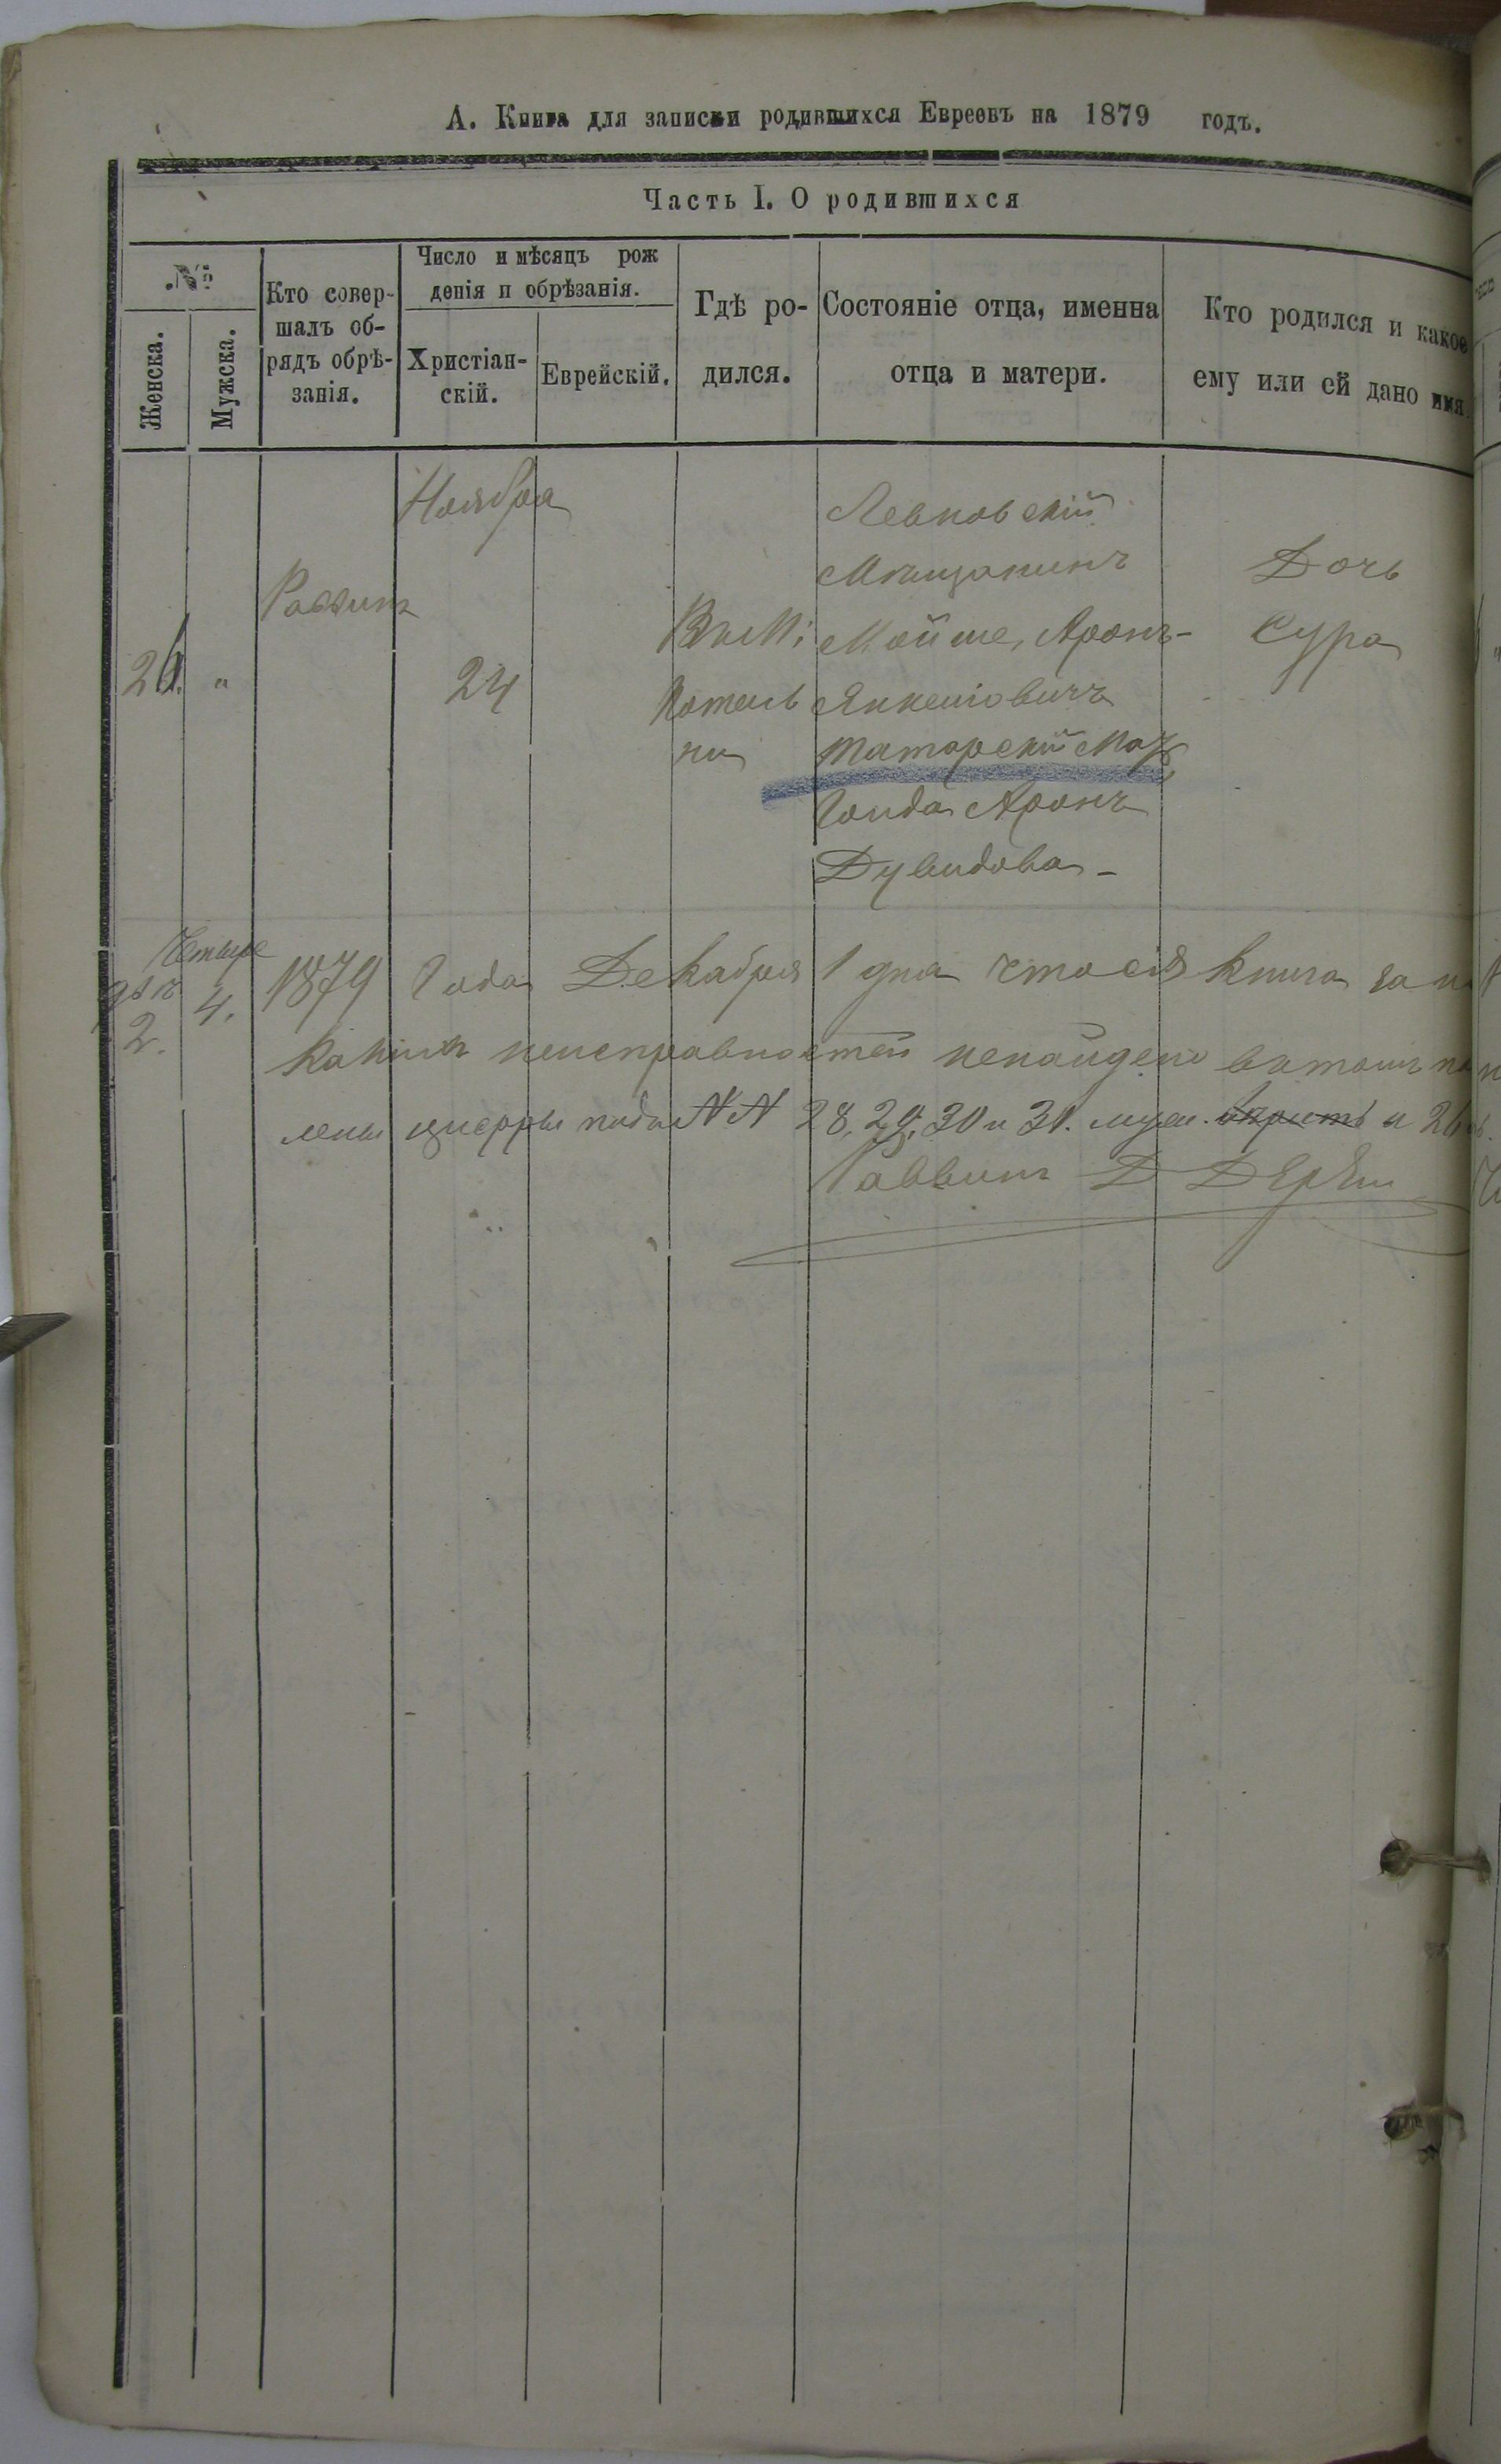 А. Книга для записки родившихся Евреевъ на 1879 годъ.
Часть I. О родившихся
№
Женска.
Мужска.
Кто совер-
шалъ об-
рядъ обрѣ-
занія.
Число и мѣсяцъ рож
денія и обрѣзанія.
Христіан-
скій.
Еврейскій.
Гдѣ ро-
дился.
Состояніе отца, именна
отца и матери.
Кто родился и какое
ему или ей дано имя.
26. "
Раввинъ
Ноября
24
Въ М:
Котель
ни
Левковскій
Мѣщанинъ
Мойше, Аронъ-
Янкелiовичъ
Татарскій Мать
Гольда Аронъ
Дувидова -
Дочь
Сура
Четыре
4.
двѣ
2.
1879 Года Декабря 1 дня что сія книга за
какихъ неисправностей ненайдено
цыфры подъ №№ 28, 29, 30 и 31. муж. и 26
Раввинъ Д